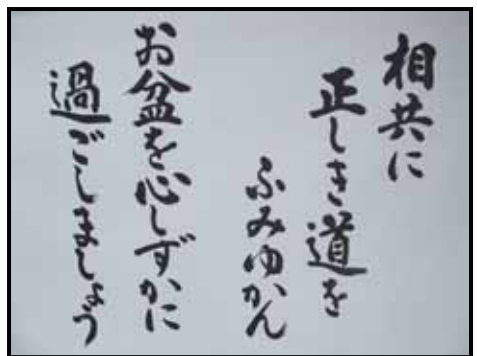 相共に
正しき道を
ふみゆかん
お盆を心しずかに
過ごしましょう